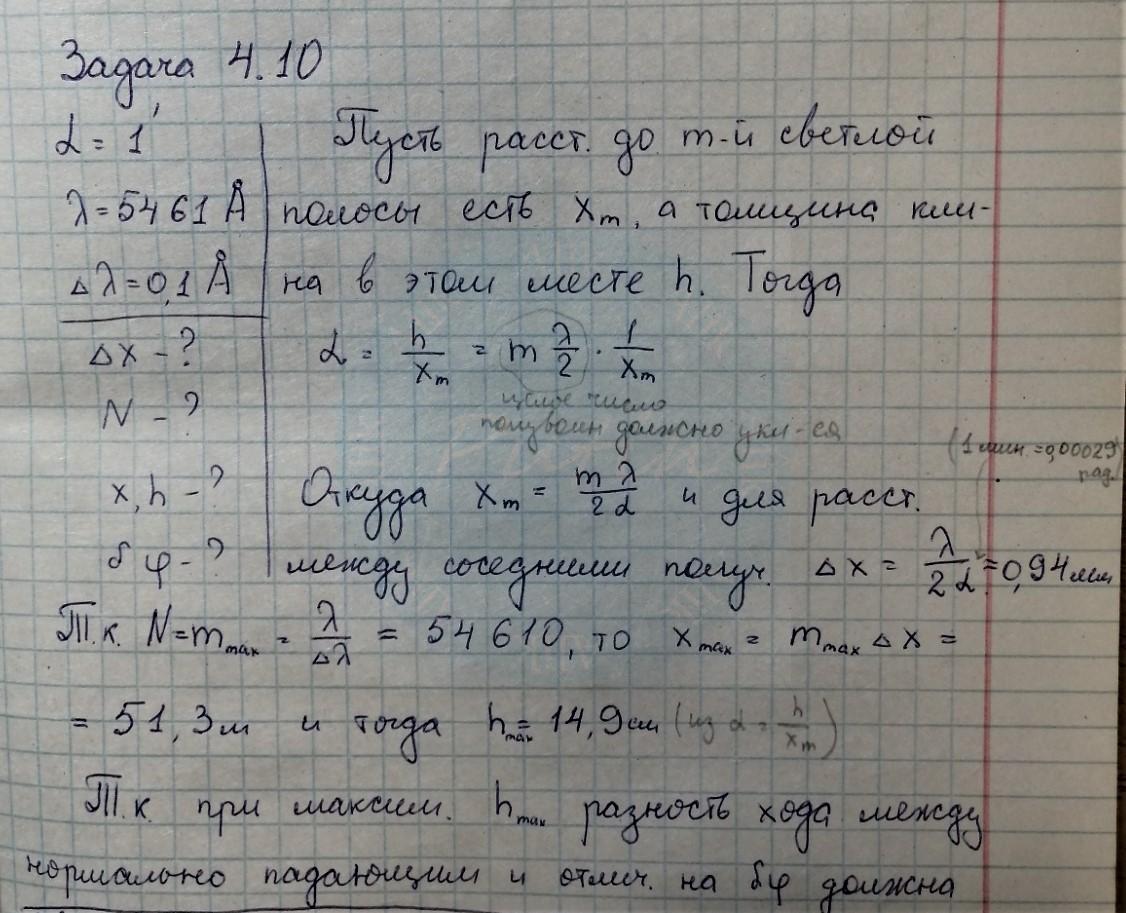 Задача 4.10
α = 1′
Пусть расст. до m-й светлой
λ = 5461 Å
полосы есть xₘ, а толщина кли-
Δλ = 0,1 Å
на в этом месте h. Тогда
Δx - ?
α = h/xₘ = m λ/2 · 1/xₘ
N - ?
целое число
полуволн должно укл-ся
(1 мин. = 0,00029 рад.
x, h - ?
Откуда xₘ = mλ/2α и для расст.
δφ - ?
между соседними получ. Δx = λ/2α = 0,94 мм
Т.к. N = mₘₐₓ = λ/Δλ = 54610, то xₘₐₓ = mₘₐₓ Δx =
= 51,3 м и тогда hₘₐₓ = 14,9 см (из α = h/xₘ)
Т.к. при максим. hₘₐₓ разность хода между
нормально падающим и отлич. на δφ должна